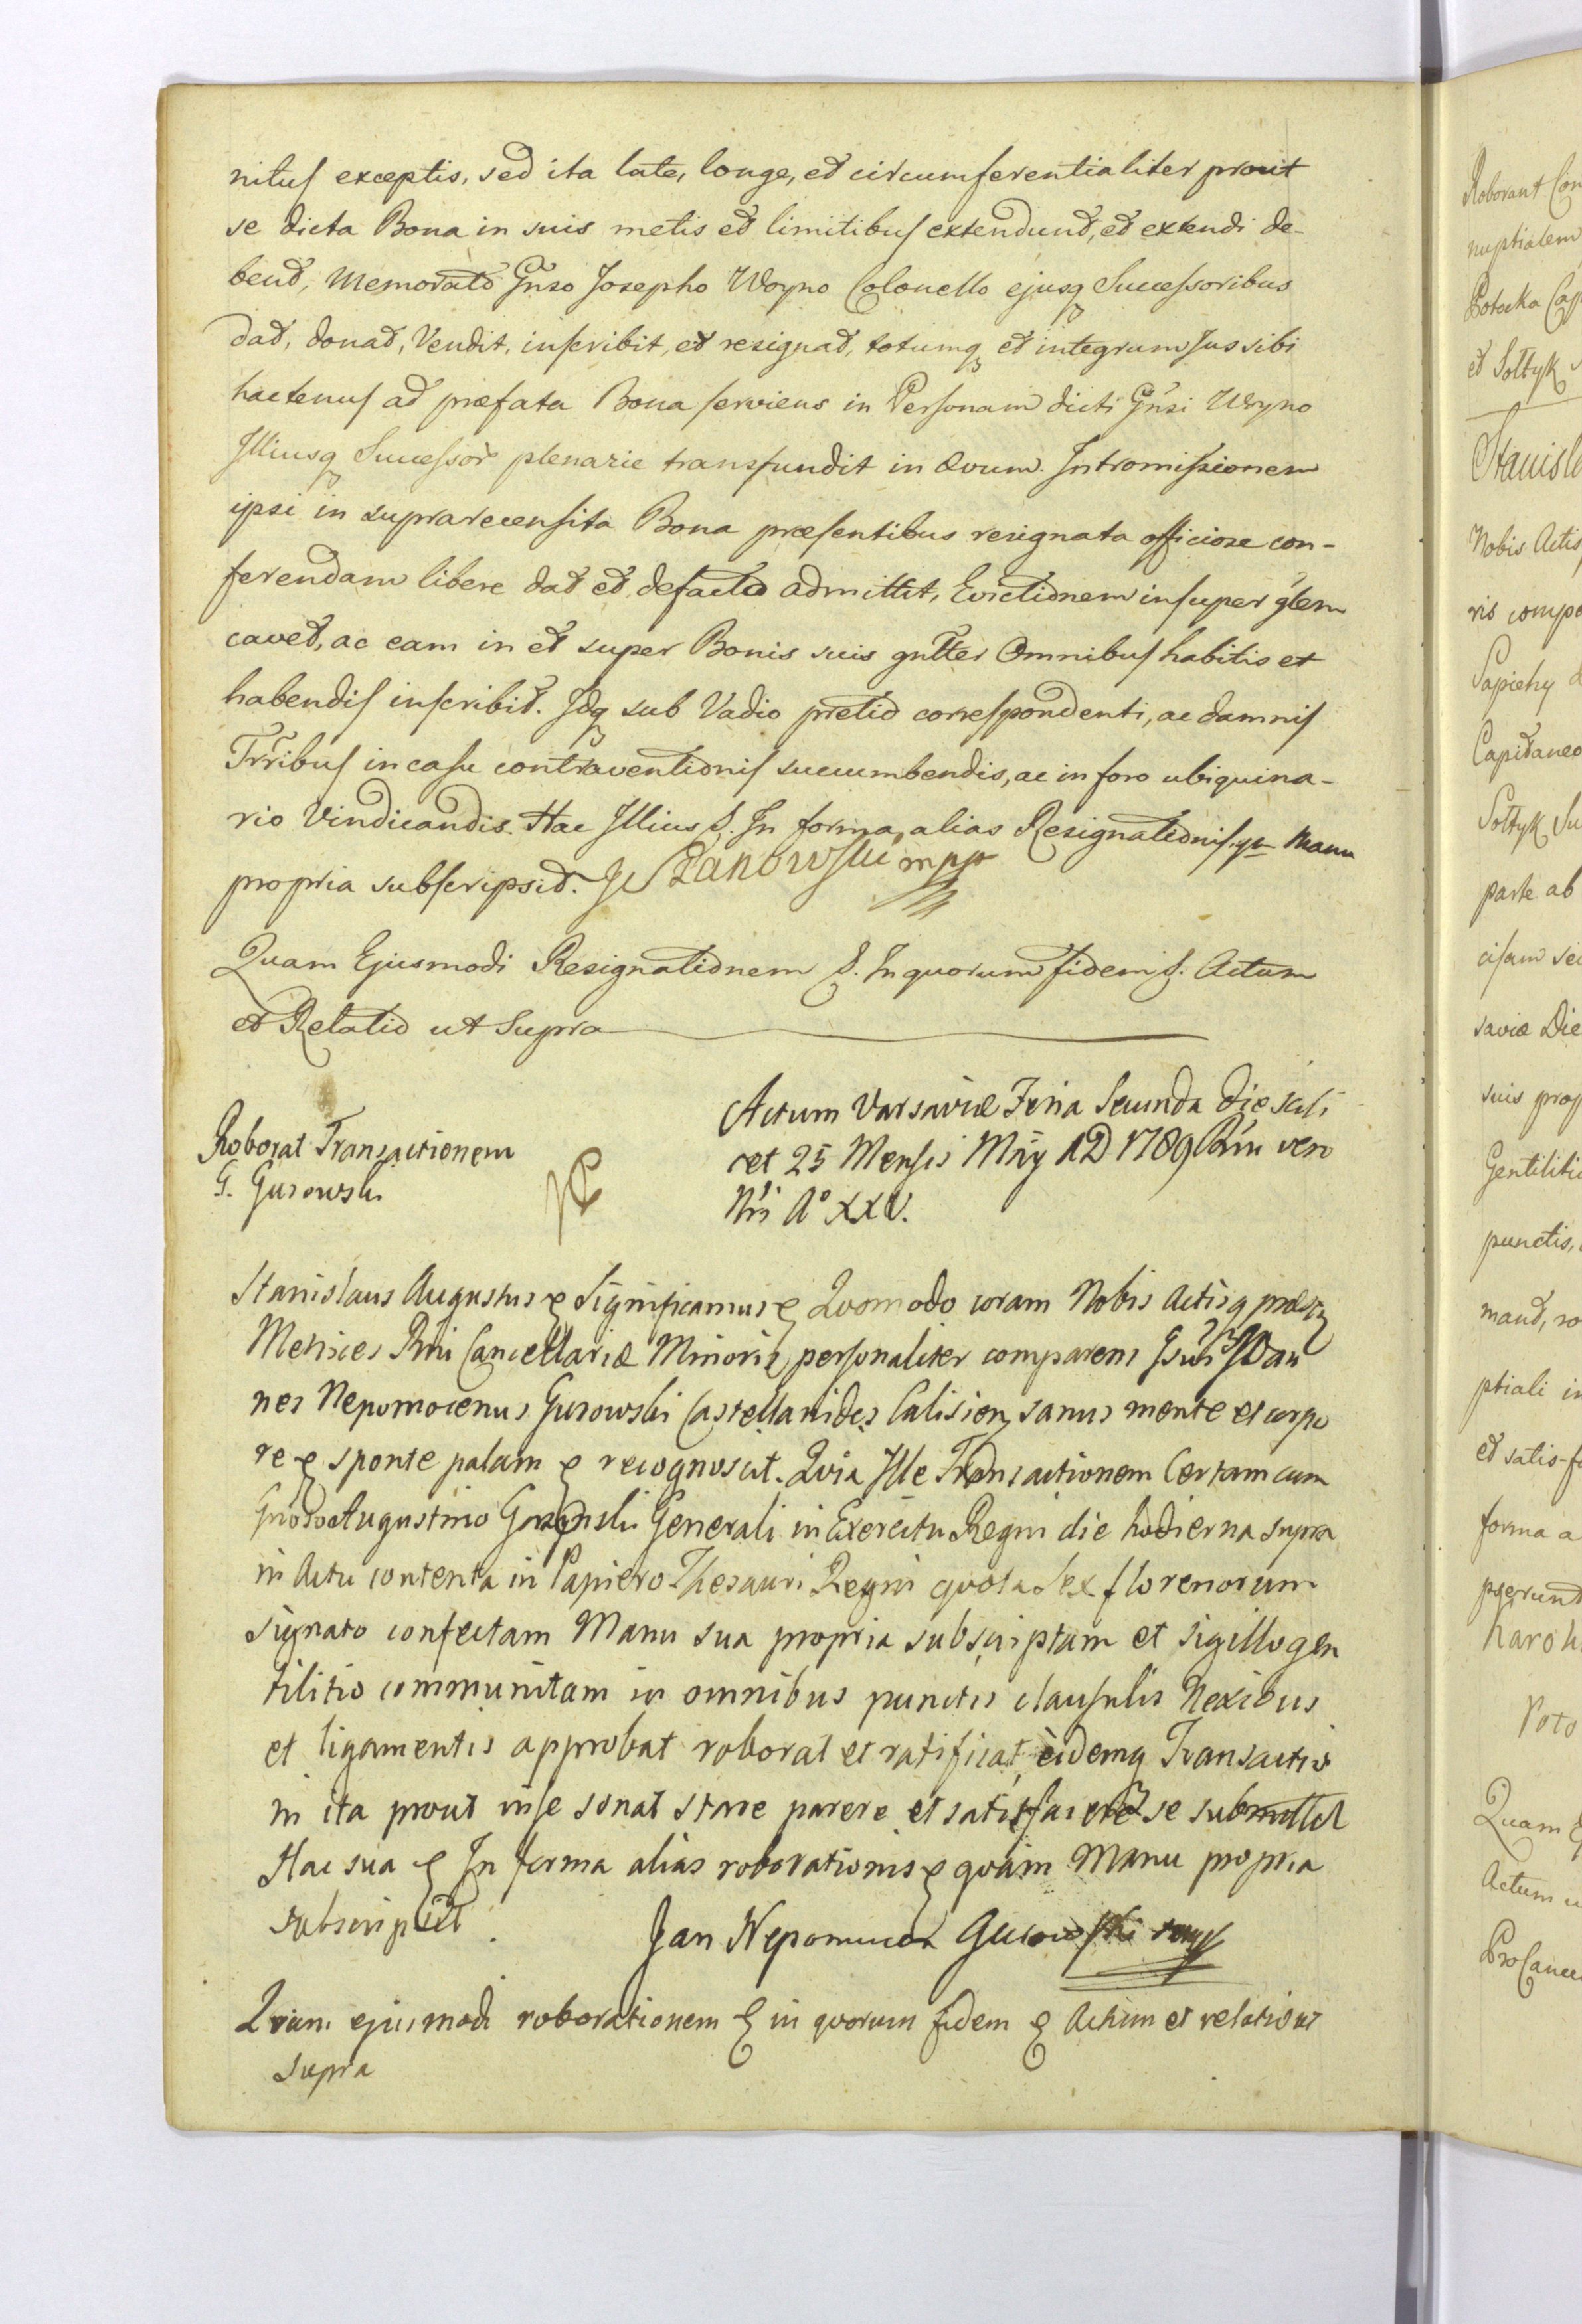 nitus exceptis, sed ita late, longe, et circumferentialiter prout
se dicta Bona in suis metis et limitibus extendunt, et extendi de-
bent, Memorato Gnso Josepho Woyno Colonello ejusq Successoribus
dat, donat, Vendit, inscribit, et resignat, totumq et integrum Jus sibi
hactenus ad præfata Bona serviens in Personam dicti Gnsi Woyno
Illiusq Successor plenarie transfundit in Ævum. Intromissionem
ipsi in suprarecensita Bona præsentibus resignata officiose con-
ferendam libere dat et defacto admittit, Evictionem insuper glem
cavet, ac eam in et super Bonis suis gnlter Omnibus habitis et
habendis inscribit. Idq sub Vadio pretio correspondenti, ac damnis
Trribus in casu contraventionis succumbendis, ac in foro ubiquina-
rio Vindicandis. Hac Illius &. In forma, alias Resignationis, qm Manu
propria subscripsit. mpp
Quam Ejusmodi Resignationem &. In quorum fidem &. Actum
et Relatio ut Supra
Roborat Transactionem
G. Gurowski
Actum Varsaviæ Feria Secunda die scili
cet 25 Mensis Maij AD 1789 Rni vero
Nri A° XXV.
Stanislaus Augustus & Significamus & Quomodo coram Nobis Actisq præstz
Metrices Rni Cancellariæ Minoris personaliter comparens Gsus Joan
nes Nepomocenus Gurowski Castellanides Calisien, sanus mente et corpo
re & sponte palam & recognoscit. Quia Ille Transactionem Certam cum
Augustino Generali in Exercitu Regni die hodierna supra
in Actu contenta in Papiero Thesauri Regni quota Sex florenorum
signato confectam Manu sua propria subscriptam et sigillo gen
tilitio communitam in omnibus punctis clausulis Nexibus
et ligamentis approbat roborat et ratificat, eidemq Transactio
ni ita prout in se sonat stare parere et satisfacere se submittit
Hac sua & In forma alias roborationis & quam Manu propria
subscripsit
Jan Nepomucen Gurowski mpp
Quam ejusmodi roborationem & in quorum fidem & Actum et relatio ut
supra
Roborant Con
nuptialem
Potocka Cap
et Sołtyk
Stanisla
Nobis Actis
ris compa
Sapiehy
Capitaneo
Sołtyk Su
parte ab
cisam sei
saviæ Die
suis prop
Gentiliti
punctis,
mant, ro
ptiali in
et satis-f
forma a
pserunt
Karol
Poto
Quam
Actum u
ProCance